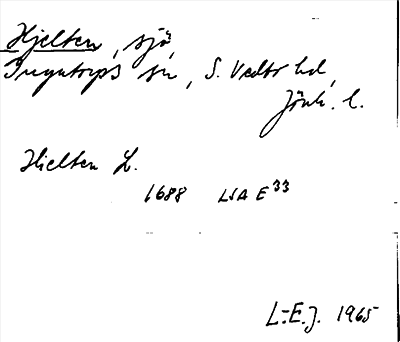 Hjelten, sjö,
Ingatorps sn, S. Vedbo hd,
Jönk. l.
Hielten L.
1688 LSA E 33
L-E.J. 1965